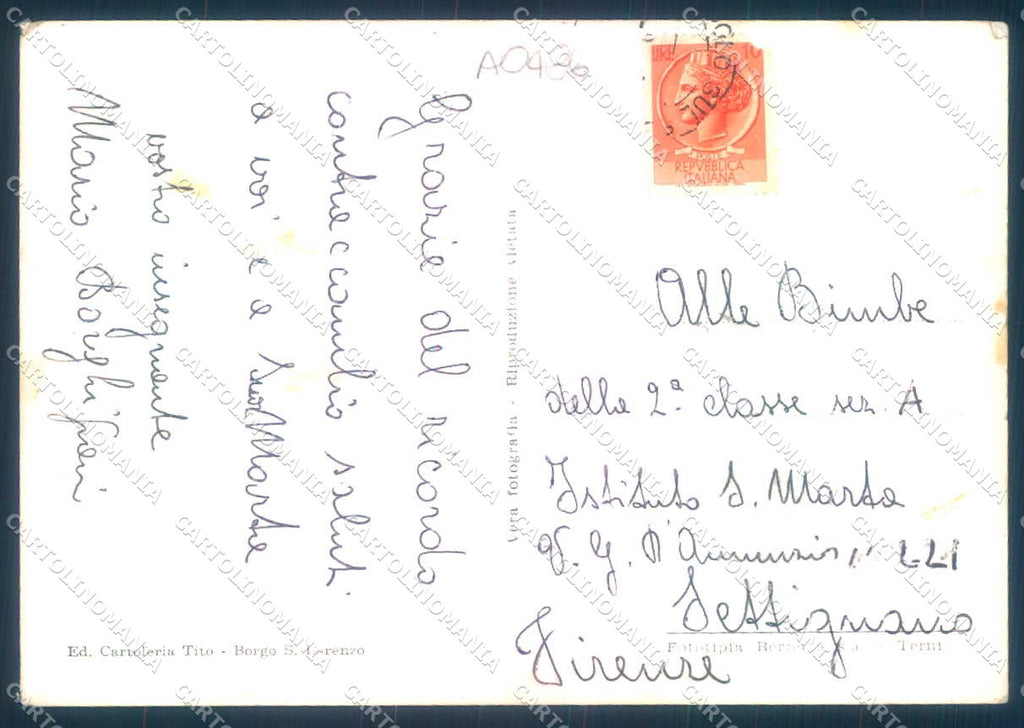 A0420
LIRE 10
POSTE
REPVBBLICA
ITALIANA
Grazie del ricordo
contraccambio saluti
a voi e a Suor Marta
vostro insegnante
Mario Borghigiani
Vera fotografia - Riproduzione vietata
Alle Bimbe
della 2ª classe sez. A
Istituto S. Marta
V. G. D'Annunzio,
Settignano
Firenze
Ed. Cartoleria Tito - Borgo S. Lorenzo
Fototipia Terni
CARTOLINOMANIA